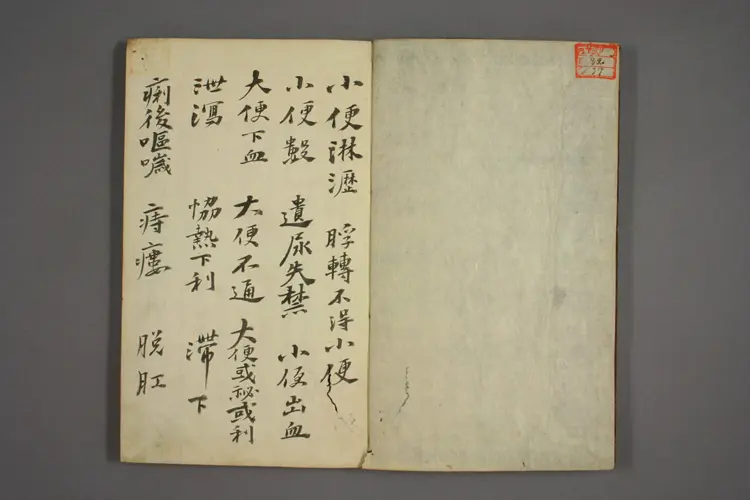 小便淋瀝 脬轉不得小便
小便數 遺尿失禁 小便出血
大便下血 大便不通 大便或祕或利
泄瀉 恊熱下利 滯下
痢後嘔噦 痔瘻 脱肛